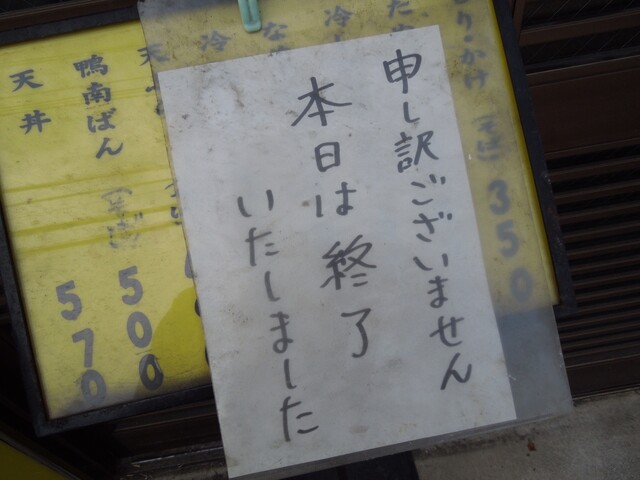 申し訳ございません
本日は終了
いたしました
もり・かけ(そば)350
鴨南ばん(そば)500
天丼 570